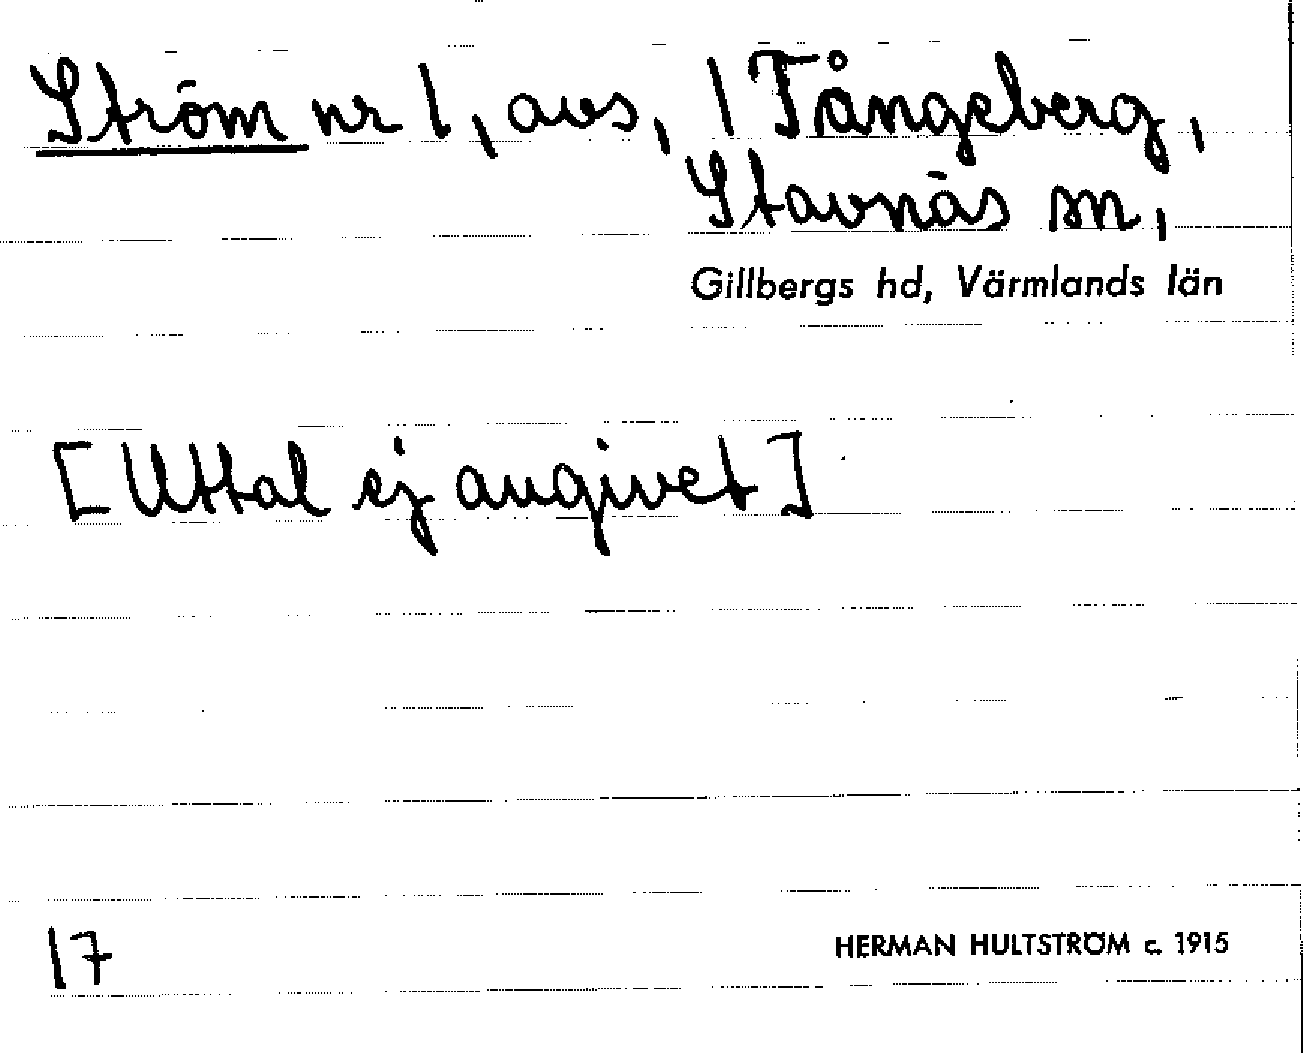 Ström nr 1, avs, 1 Tångeberg,
Stavnäs sn,
Gillbergs hd, Värmlands län
[Uttal ej angivet]
17
HERMAN HULTSTRÖM c. 1915